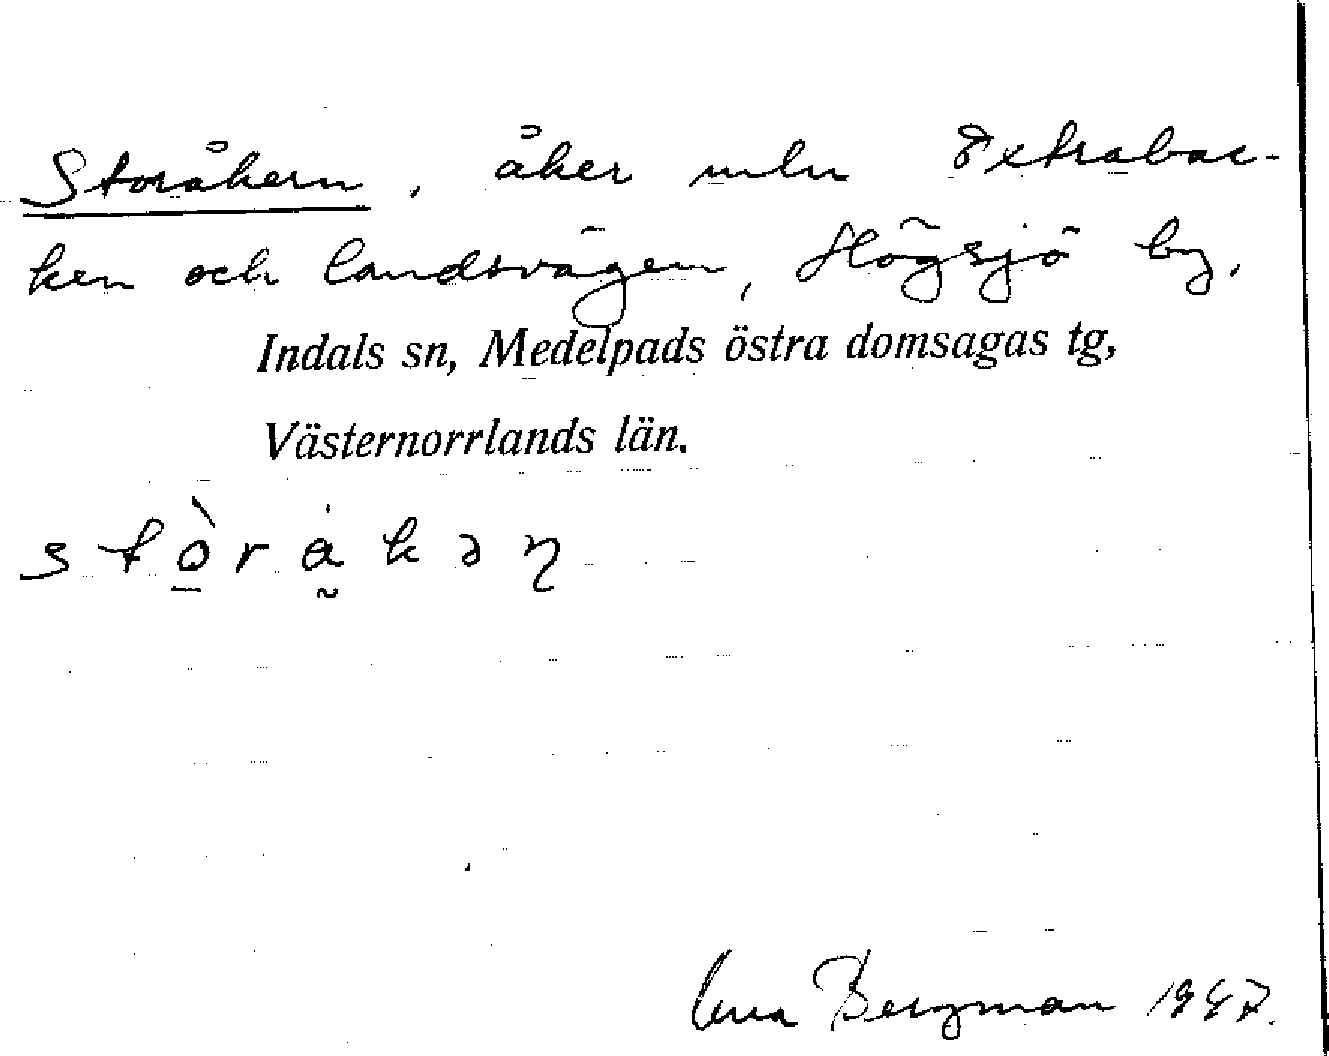 Storåkern, åker mln Petrabac-
ken och landsvägen, Högsjö by.
Indals sn, Medelpads östra domsagas tg,
Västernorrlands län.
Bergman 1947.